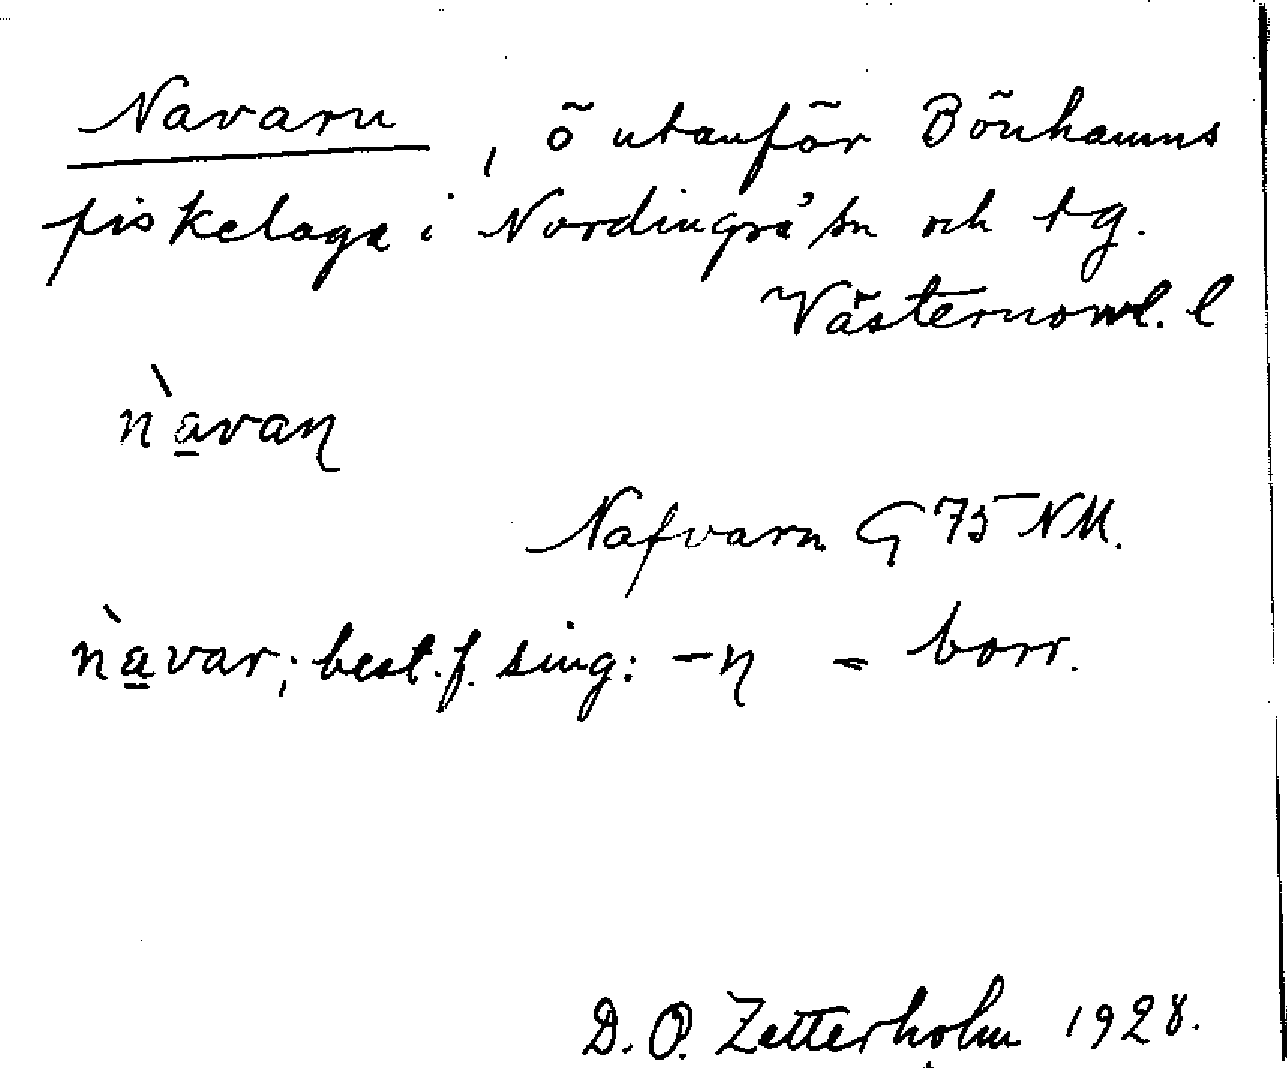 Navarn, ö utanför Bönhamns
fiskeläge i Nordingrå sn och tg.
Västernorrl. l
nàvaɳ
Nafvarn G 75 NM.
nàvar; best. f. sing: -ɳ = borr.
D. O. Zetterholm 1928.